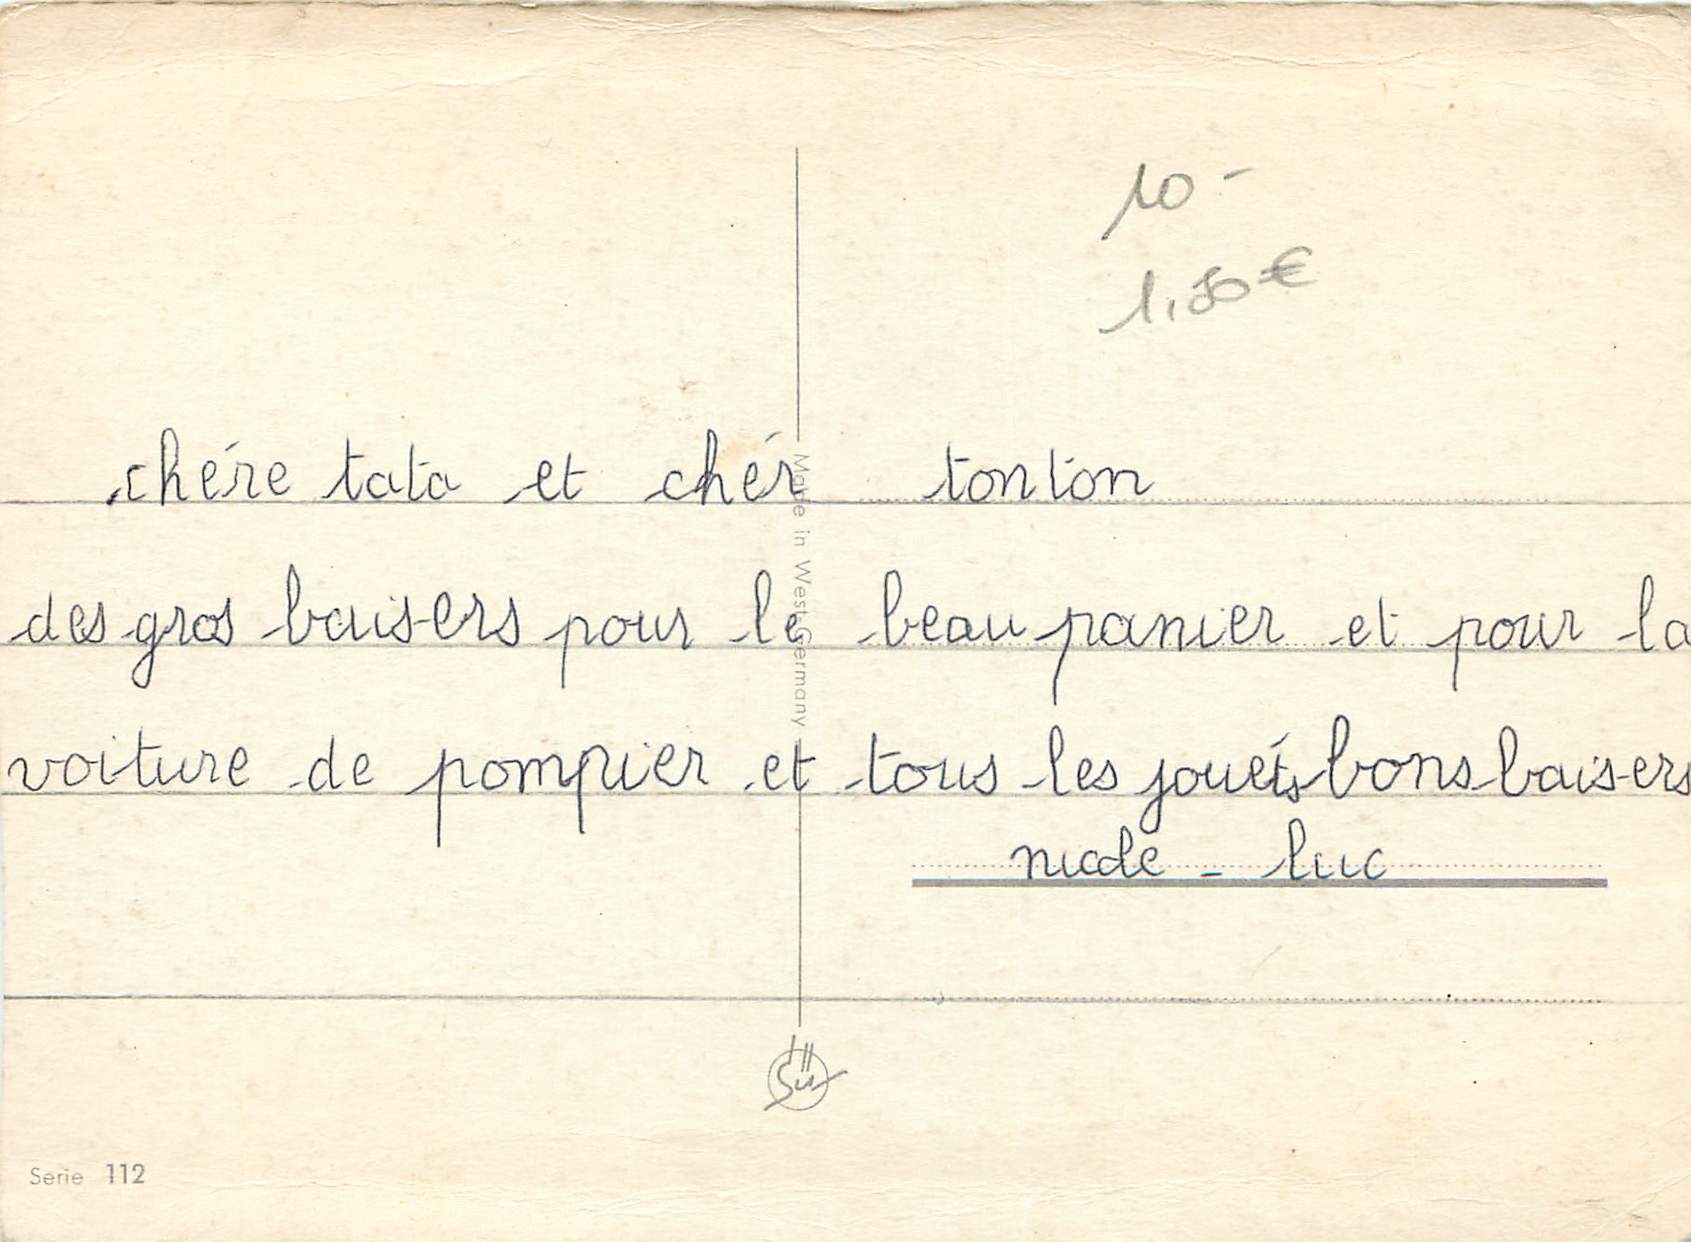 10-
1,50€
chére tata et chér tonton
des gros baisers pour le beau panier et pour la
voiture de pompier et tous les jouéts bons baisers
nicole - luc
Made in West-Germany
Serie 112